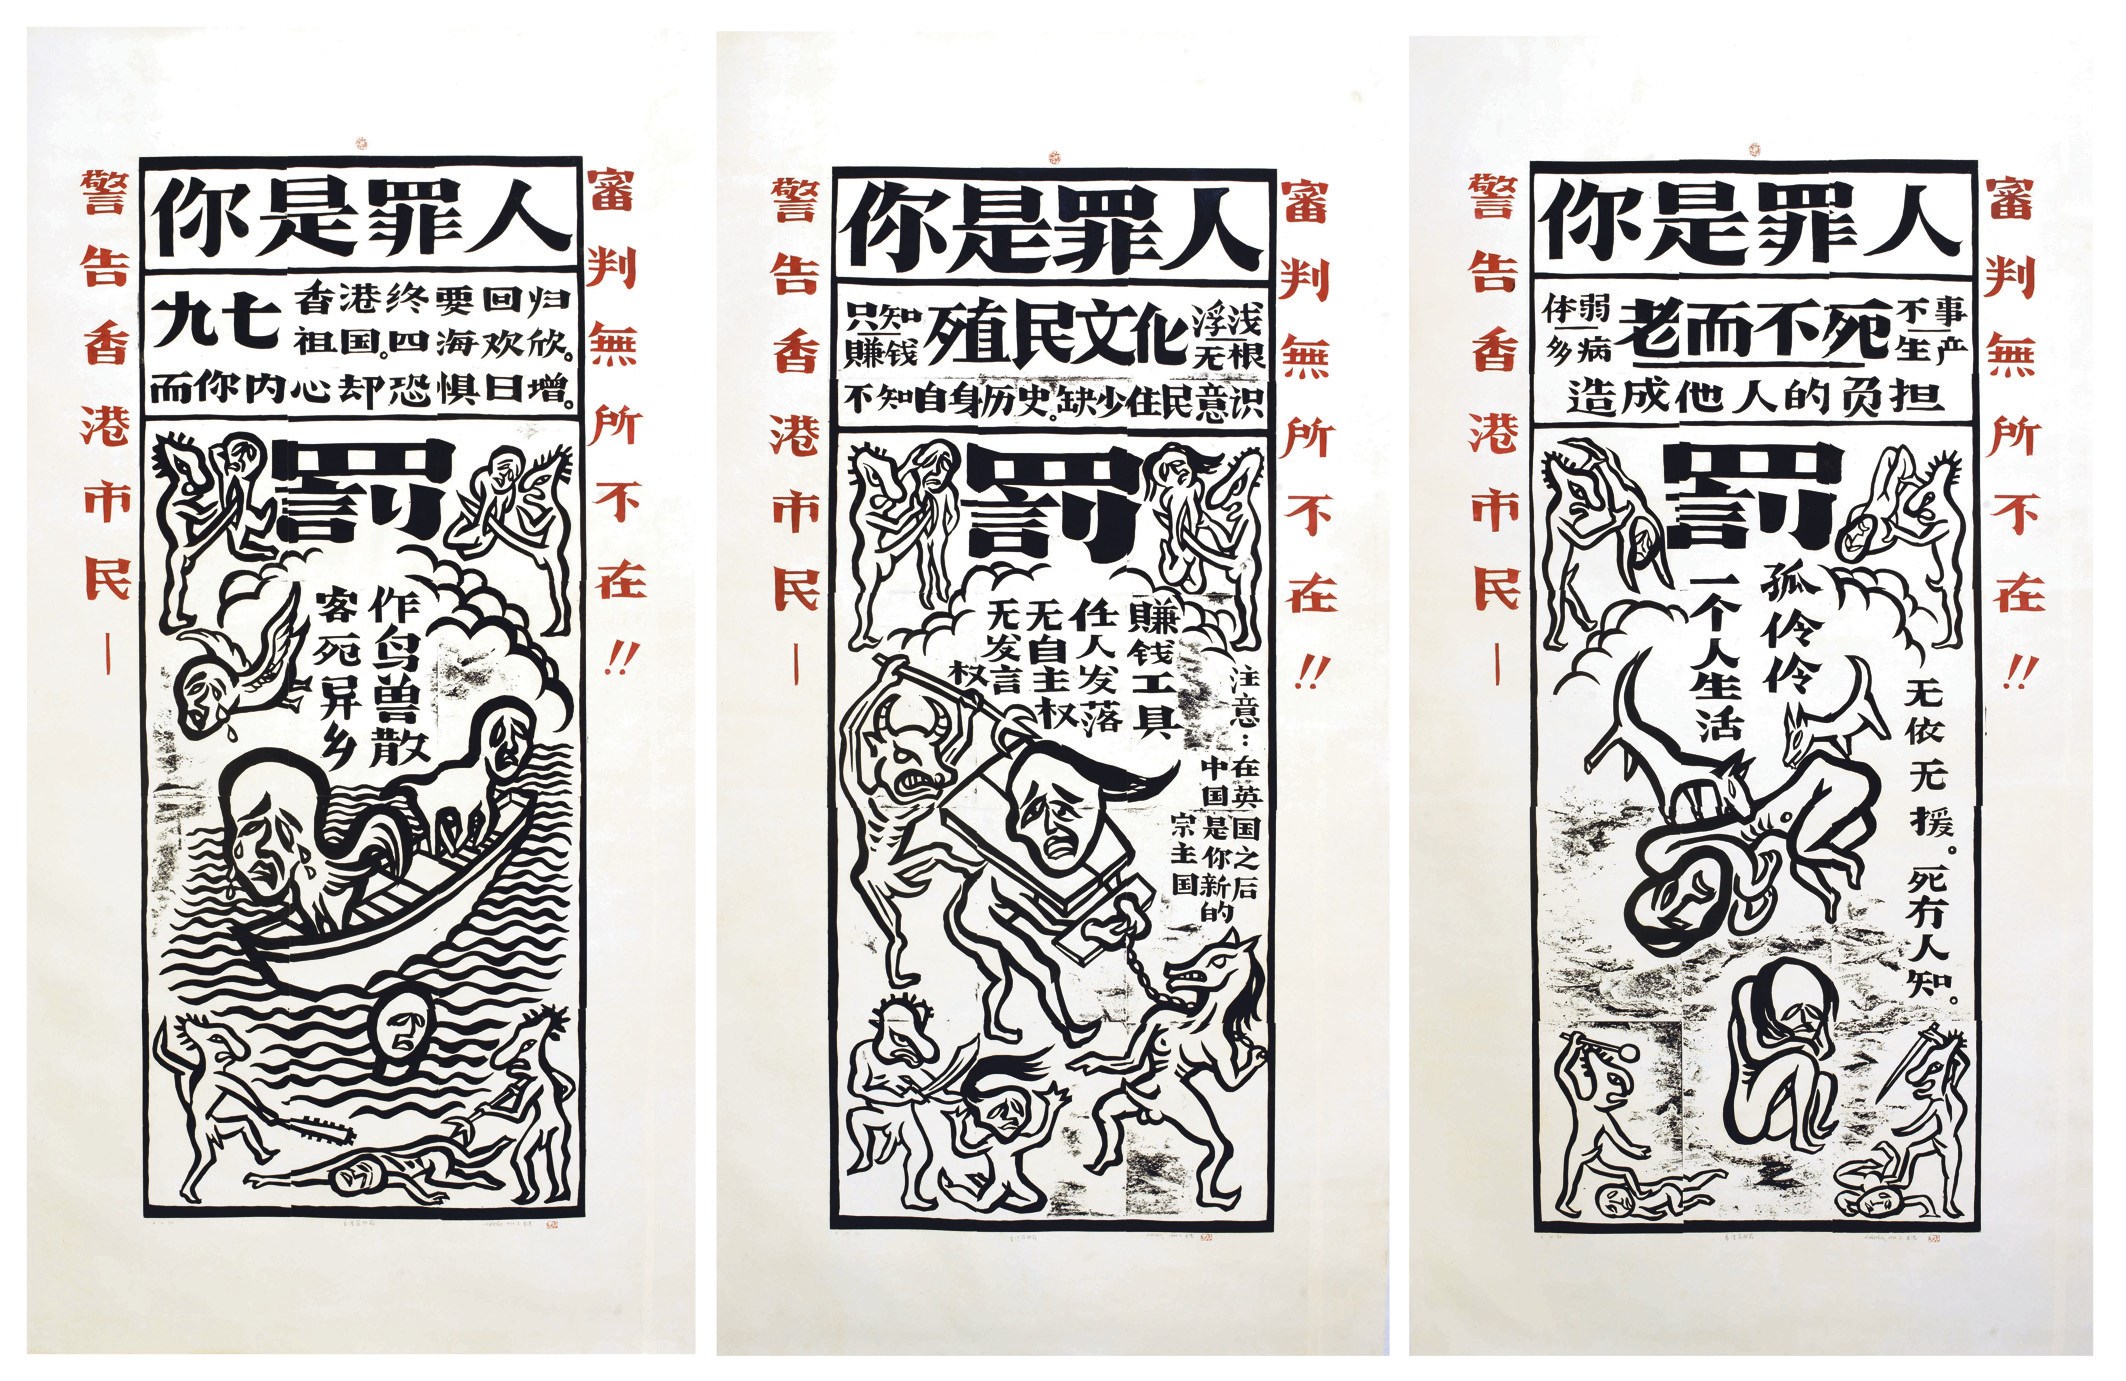 警告香港市民—
審判無所不在!!
你是罪人
九七
香港终要回归
祖国。四海欢欣。
而你内心却恐惧日增。
罰
作鸟兽散
客死异乡
警告香港市民—
審判無所不在!!
你是罪人
只知
賺钱
殖民文化
浮浅
无根
不知自身历史。缺少住民意识
罰
賺钱工具
任人发落
无自主权
无发言权
注意:在英国之后
中国是你新的
宗主国
警告香港市民—
審判無所不在!!
你是罪人
体弱
多病
老而不死
不事
生产
造成他人的负担
罰
孤伶伶
一个人生活
无依无援。死冇人知。